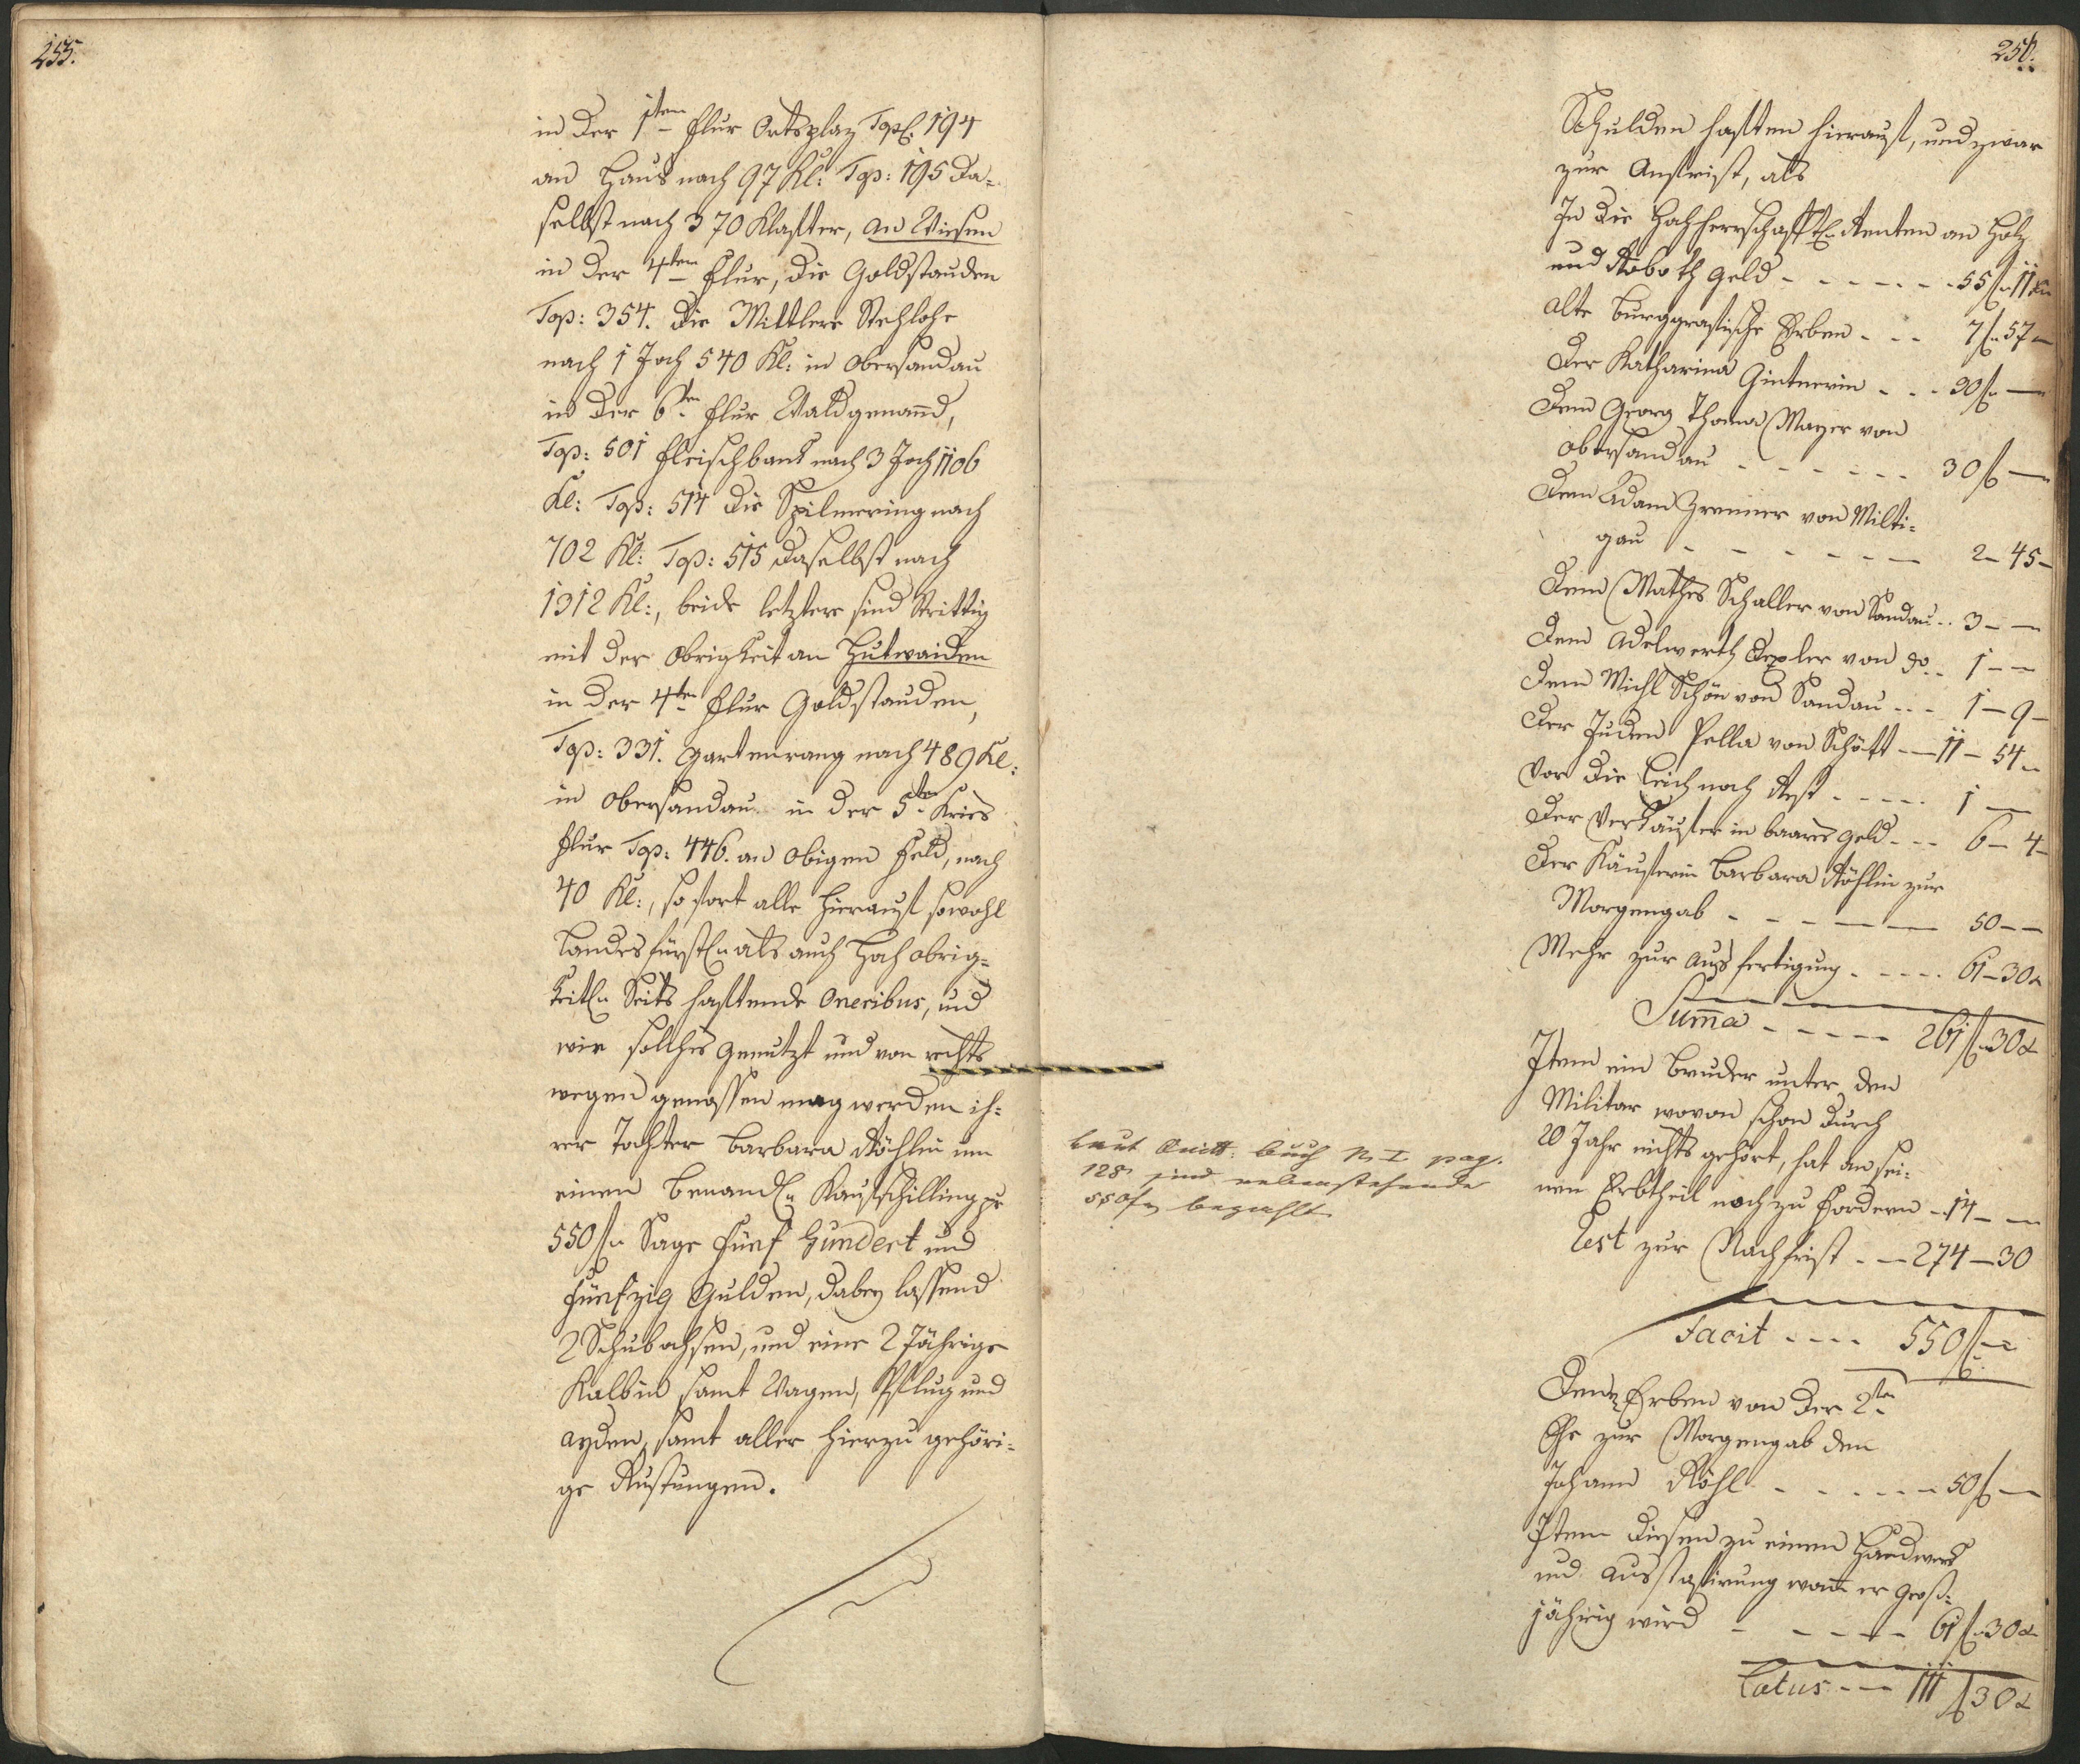 255.
in der 1ten Flur Ortsplaz Top: 194
an Haus nach 97 Kl: Top: 195 da-
selbst nach 370 Klafter, an Wiesen
in der 4ten Flur, die Goldstauden
Top: 354. die Mittlere Stehlohe
nach 1 Joch 540 Kl: in Obersandau
in der 6ten Flur Wald genannd,
Top: 501 Fleischbank nach 3 Joch 1106
Kl: Top: 514 die Spilmering nach
702 Kl: Top: 515 daselbst nach
1312 Kl:, beide letztere sind strittig
mit der Obrigkeit an Hutwaiden
in der 4ten Flur Goldstauden,
Top: 331. Gartenrang nach 489 Kl:
in Obersandau in der 5ten Kries
Flur Top: 446. an obigen Feld, nach
40 Kl:, so fort alle hierauf sowohl
Landesfürstln als auch Hoch obrig-
keitln Seits haftende Oneribus, und
wie solches genutzt und von rechts
wegen genossen mag werden ih-
rer Tochter Barbara Röhlin um
einen benandln Kaufschilling pr
550 fl Sage Fünf Hundert und
Fünfzig Gulden, dabey lassend
2 Schubochsen, und eine 2 Jährige
Kalbin samt Wagen, Pflug und
ayden, samt aller hierzu gehöri-
ge Rustungen.
256.
Schulden haften hierauf, und zwar
zur Anfrist, als
In die Hochherrschaftl: Renten an Holz
und Roboth Geld - - - - - - 55 fl 11 kr
alte Burggrafische Erben - - - 7 fl 57 -
Der Katharina Gintnerin - - - 30 fl -
Dem Georg Thoma Mayer von
Obersandau - - - - - - 30 fl -
Dem Adam Zrenner von Milti-
gau - - - - - - - 2 - 45 -
Dem Mathes Schaller von Sandau - - 3 - -
Dem Adelwerth Dexler von do - - 1 - -
Dem Michl Schön von Sandau - - - 1 - 9 -
Der Juden Pella von Schött - - 11 - 54 -
Vor die Leich noch Rest - - - - - 1 -
Der Verkäufer in baares Geld - - - 6 - 4 -
Der Käuferin Barbara Röhlin zur
Morgengab - - - - - - 50 - -
Mehr zur Ausfertigung - - - - - 61 - 30 -
Summa - - - - - 261 fl 30 x
Item ein Bruder unter dem
Militar wovon schon durch
20 Jahr nichts gehört, hat an sei-
nen Erbtheil noch zu fordern - 14 - -
Rest zur Nachfrist - - 274 - 30
Facit - - - - 550 fl - -
Laut Quitt: Buch N. I pag.
128 sind nebenstehende
550 f bezahlt
Denen Erben von der 2ten
Ehe zur Morgengab dem
Johann Röhl - - - - - - 50 fl -
Item diesem zu einem Handwerk
und Ausstafirung wann er Groß-
jährig wird - - - - - 61 fl 30 x
Latus - - - 111 fl 30 x